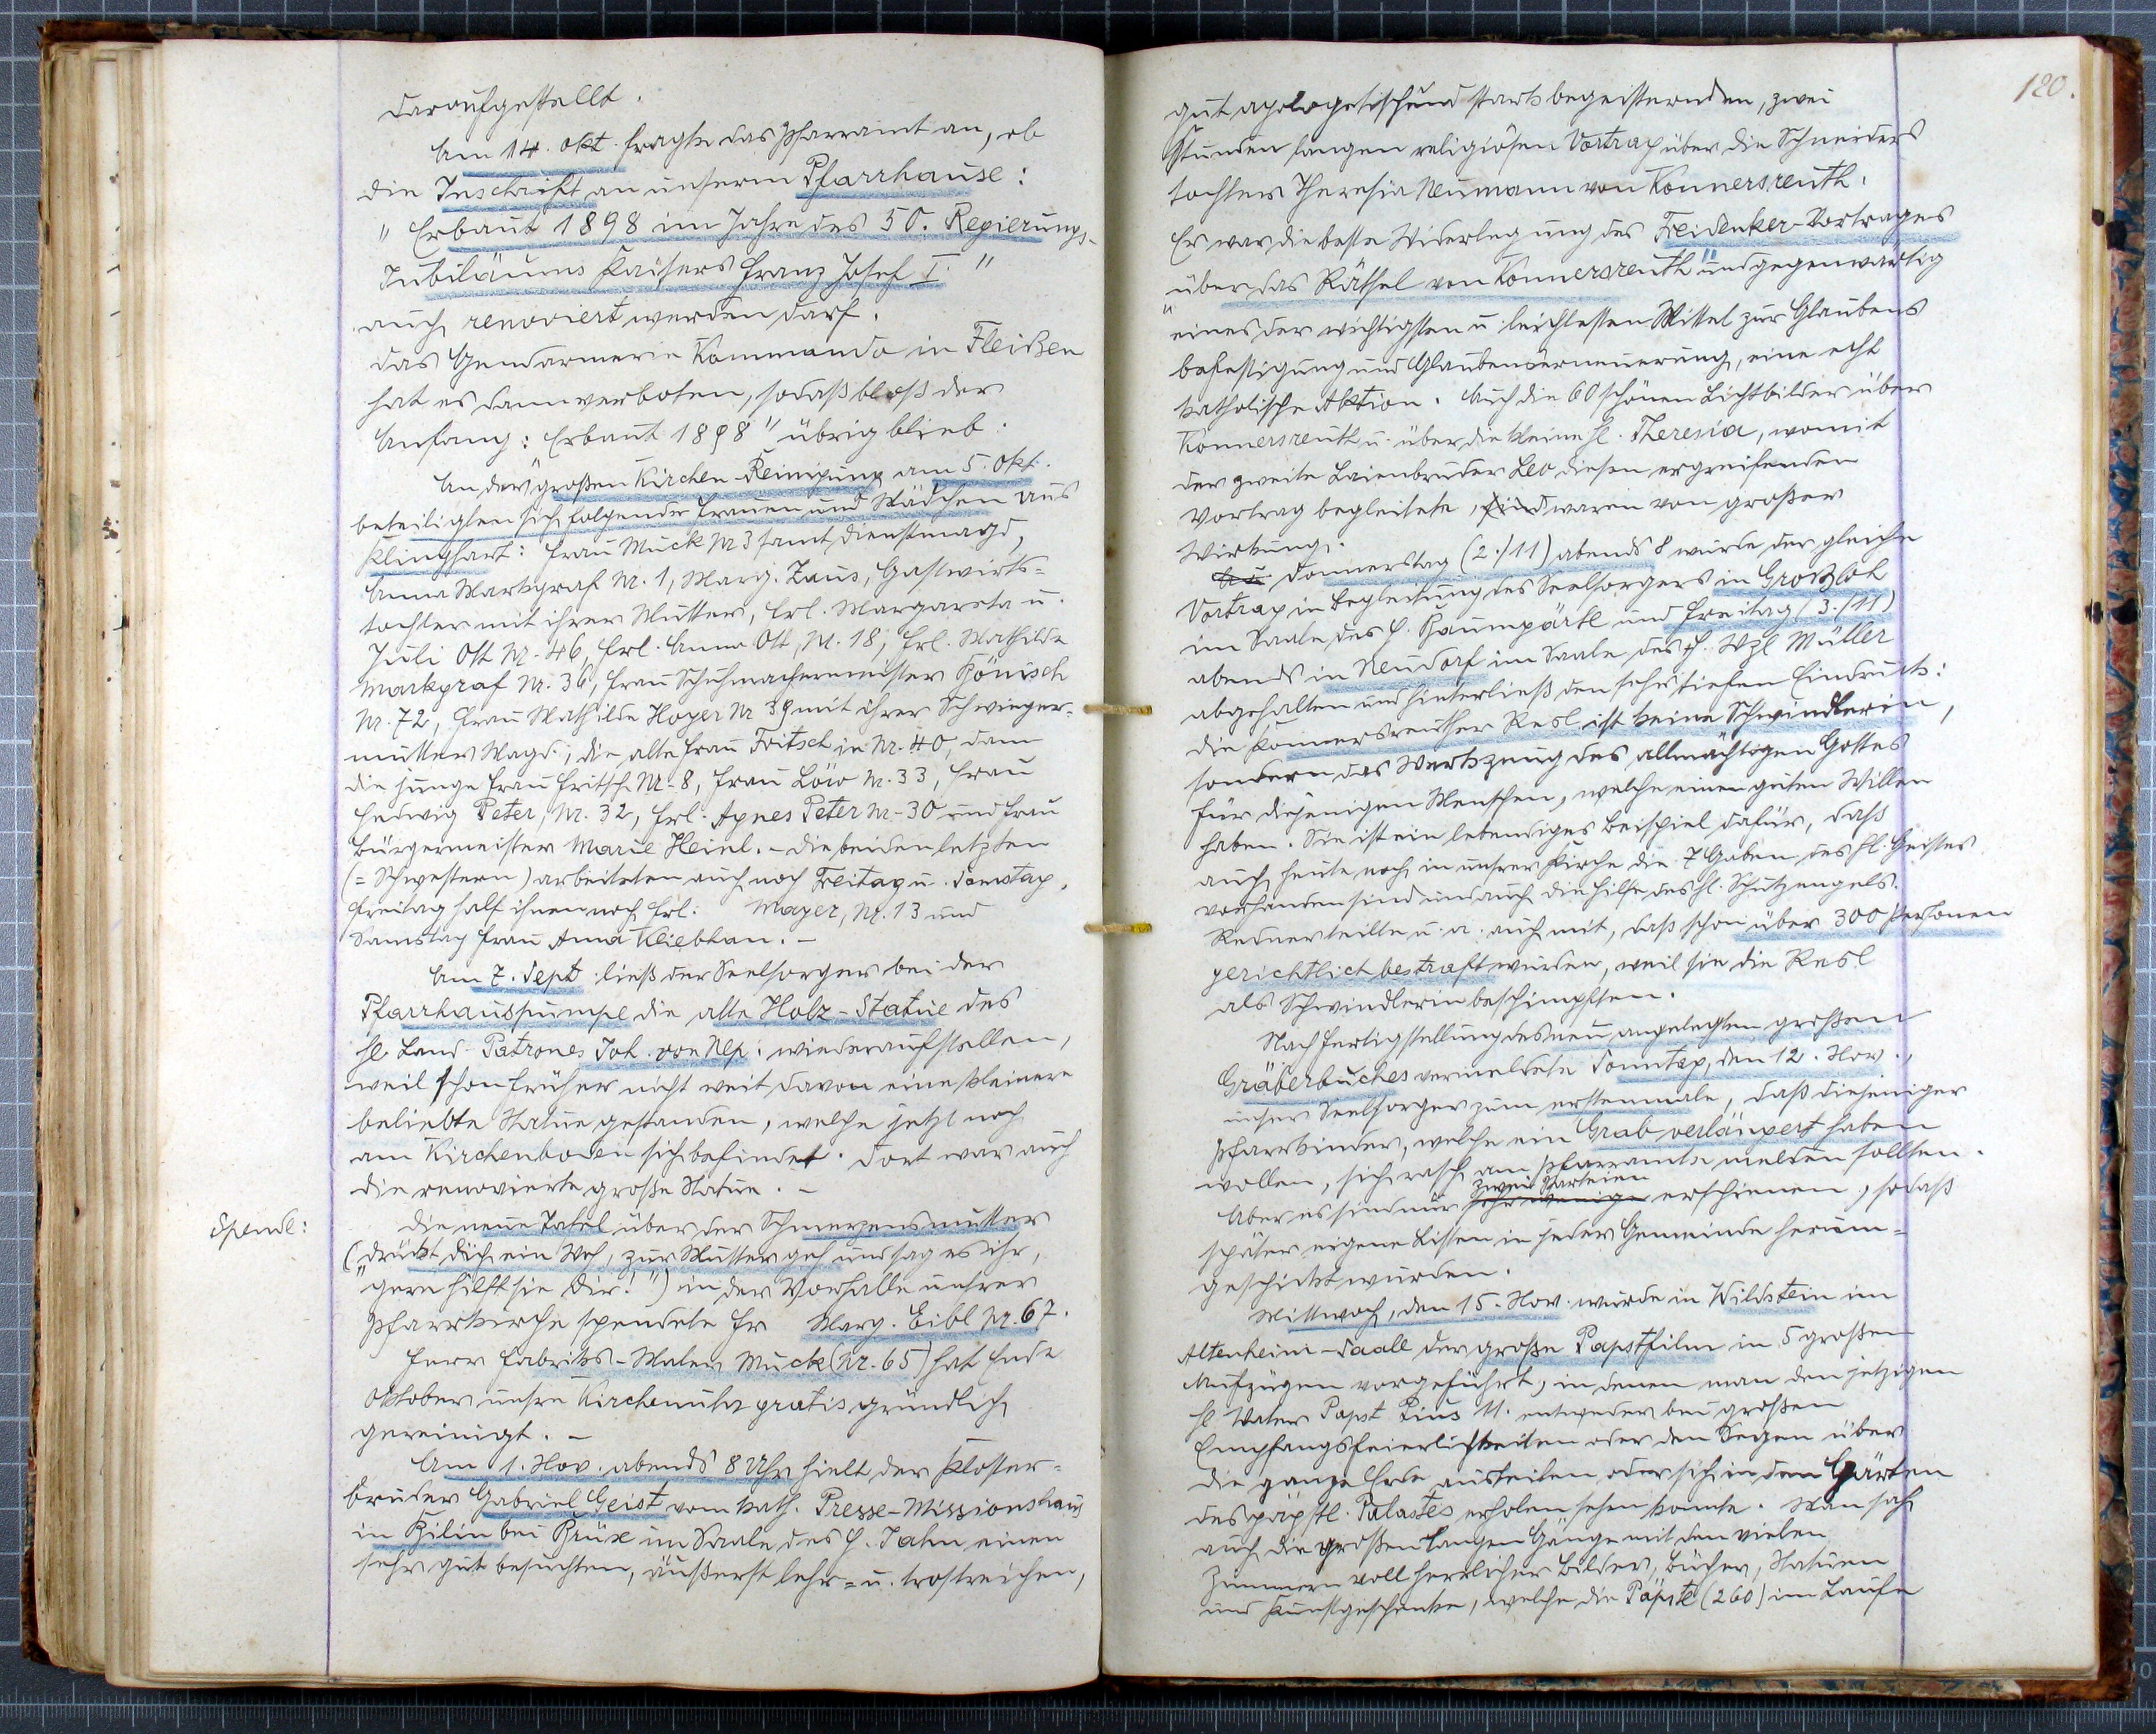 daraufgestellt.
Am 14. Okt. fragte das Pfarramt an, ob
die Inschrift an unserm Pfarrhause:
" Erbaut 1898 im Jahre des 50. Regierungs-
Jubiläums Kaisers Franz Josef I. "
auch renoviert werden darf.
Das Gendarmerie Kommando in Fleißen
hat es dann verboten, sodaß bloß der
Anfang: Erbaut 1898" übrig blieb.
An der großen Kirchen-Reinigung am 5. Okt.
beteiligten sich folgende Frauen und Mädchen aus
Klinghart: Frau Muck Nr 3 samt Dienstmagd,
Anna Markgraf Nr. 1, Marg. Zaus, Gastwirts-
tochter mit ihrer Mutter, Frl. Margareta u.
Juli Ott Nr. 46, Frl. Anna Ott, Nr. 18, Frl. Mathilde
Markgraf Nr. 36, Frau Schuhmachermeister Bönisch
Nr. 72, Frau Mathilde Hoyer Nr 39 mit ihrer Schwieger-
mutter Magd., die alte Frau Fritsch in Nr. 40, dann
die junge Frau Fritsch Nr. 8, Frau Löw Nr. 33, Frau
Hedwig Peter, Nr. 32, Frl. Agnes Peter Nr. 30 und Frau
Bürgermeister Marie Heinl. - Die beiden letzten
(= Schwestern) arbeiteten auch noch Freitag u. Samstag,
Freitag half ihnen noch Frl. Mayer, Nr. 13 und
Samstag Frau Anna Kliebhan. -
Am 7. Sept. ließ der Seelsorger bei der
Pfarrhauspumpe die alte Holz-Statue des
hl. Land-Patrones Joh. von Nep. wiederaufstellen,
weil schon früher nicht weit davon eine kleinere
beliebte Statue gestanden, welche jetzt noch
am Kirchenboden sich befindet. Dort war auch
die renovierte große Statue. -
Spende:
Die neue Tafel über der Schmerzensmutter
("Drückt dich ein Weh, zur Mutter geh und sag es ihr,
gern hilft sie Dir!") in der Vorhalle unsrer
Pfarrkirche spendete Fr Marg. Eibl Nr. 67.
Herr Fabriks-Maler Muck (Nr. 65) hat Ende
Oktober unsre Kirchenuhr gratis gründlich
gereinigt. -
Am 1. Nov. abends 8 Uhr hielt der Kloster-
bruder Gabriel Geist vom kath. Presse-Missionshaus
in Bilin bei Brüx im Saale des H. Jahn einen
sehr gut besuchten, äußerst lehr- u. trostreichen,
120.
gut apologetisch und stark begeisternden, zwei
Stunden langen religiösen Vortrag über die Schneiders
tochter Theresia Neumann von Konnersreuth.
Er war die beste Widerlegung des Freidenker-Vortrages
über "das Rätsel von Konnersreuth" und gegenwärtig
eines der wichtigsten u. leichtesten Mittel zur Glaubens
befestigung und Glaubenserneuerung, eine echt
katholische Aktion. Auch die 60 schönen Lichtbilder über
Konnersreuth u. über die kleine hl. Theresia, womit
der zweite Laienbruder Leo diesen ergreifenden
Vortrag begleitete, sind waren von großer
Wirkung.
Am Donnerstag (2./11) abends 8 wurde der gleiche
Vortrag in Begleitung des Seelsorgers in Großloh
im Saale des H. Baumgärtl und Freitag (3./11)
abends in Neudorf im Saale des H. Wzl Müller
abgehalten und hinterließ den sehr tiefen Eindruck:
die Konnersreuther Resl ist keine Schwindlerin,
sondern das Werkzeug des allmächtigen Gottes
für diejenigen Menschen, welche einen guten Willen
haben. Sie ist ein lebendiges Beispiel dafür, daß
auch heute noch in unsrer Kirche die 7 Gaben des hl. Geistes
vorhanden sind und auch die Hilfe des hl. Schutzengels.
Redner teilte u. a. auch mit, daß schon über 300 Personen
gerichtlich bestraft wurden, weil sie die Resl
als Schwindlerin beschimpften.
Nach Fertigstellung des neu angelegten großen
Gräberbuches vermeldete Sonntag, den 12. Nov.,
unser Seelsorger zum erstenmale, daß diejenigen
Pfarrkinder, welche ein Grab verlängert haben
wollen, sich rasch am Pfarramte melden sollten.
Aber es sind nur sehr wenige zwei Parteien erschienen, sodaß
später eigene Listen in jeder Gemeinde herum-
geschickt wurden.
Mittwoch, den 15. Nov. wurde in Wildstein im
Altenheim-Saale der große Papstfilm in 5 großen
Aufzügen vorgeführt, in denen man den jetzigen
hl. Vater Papst Pius 11. entweder bei großen
Empfangsfeierlichkeiten oder den Segen über
die ganze Erde austeilen oder sich in den Gärten
des päpstl. Palastes erholen sehen konnte. Man sah
auch die großen langen Gänge mit den vielen
Zimmern voll herrlicher Bilder, Bücher, Statuen
und Kunstgeschenke, welche die Päpste (260) im Laufe